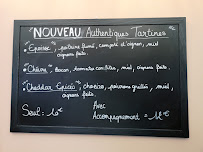 NOUVEAU Authentiques Tartines
• Époisse, poitrine fumé, compoté d'oignon, miel
oignons frits.
• Chèvre, bacon, tomates confites, miel, oignons frits.
• Cheddar Épicé, chorizo, poivrons grillés, miel
oignons frits.
Seul: 10€
Avec
Accompagnement = 12€